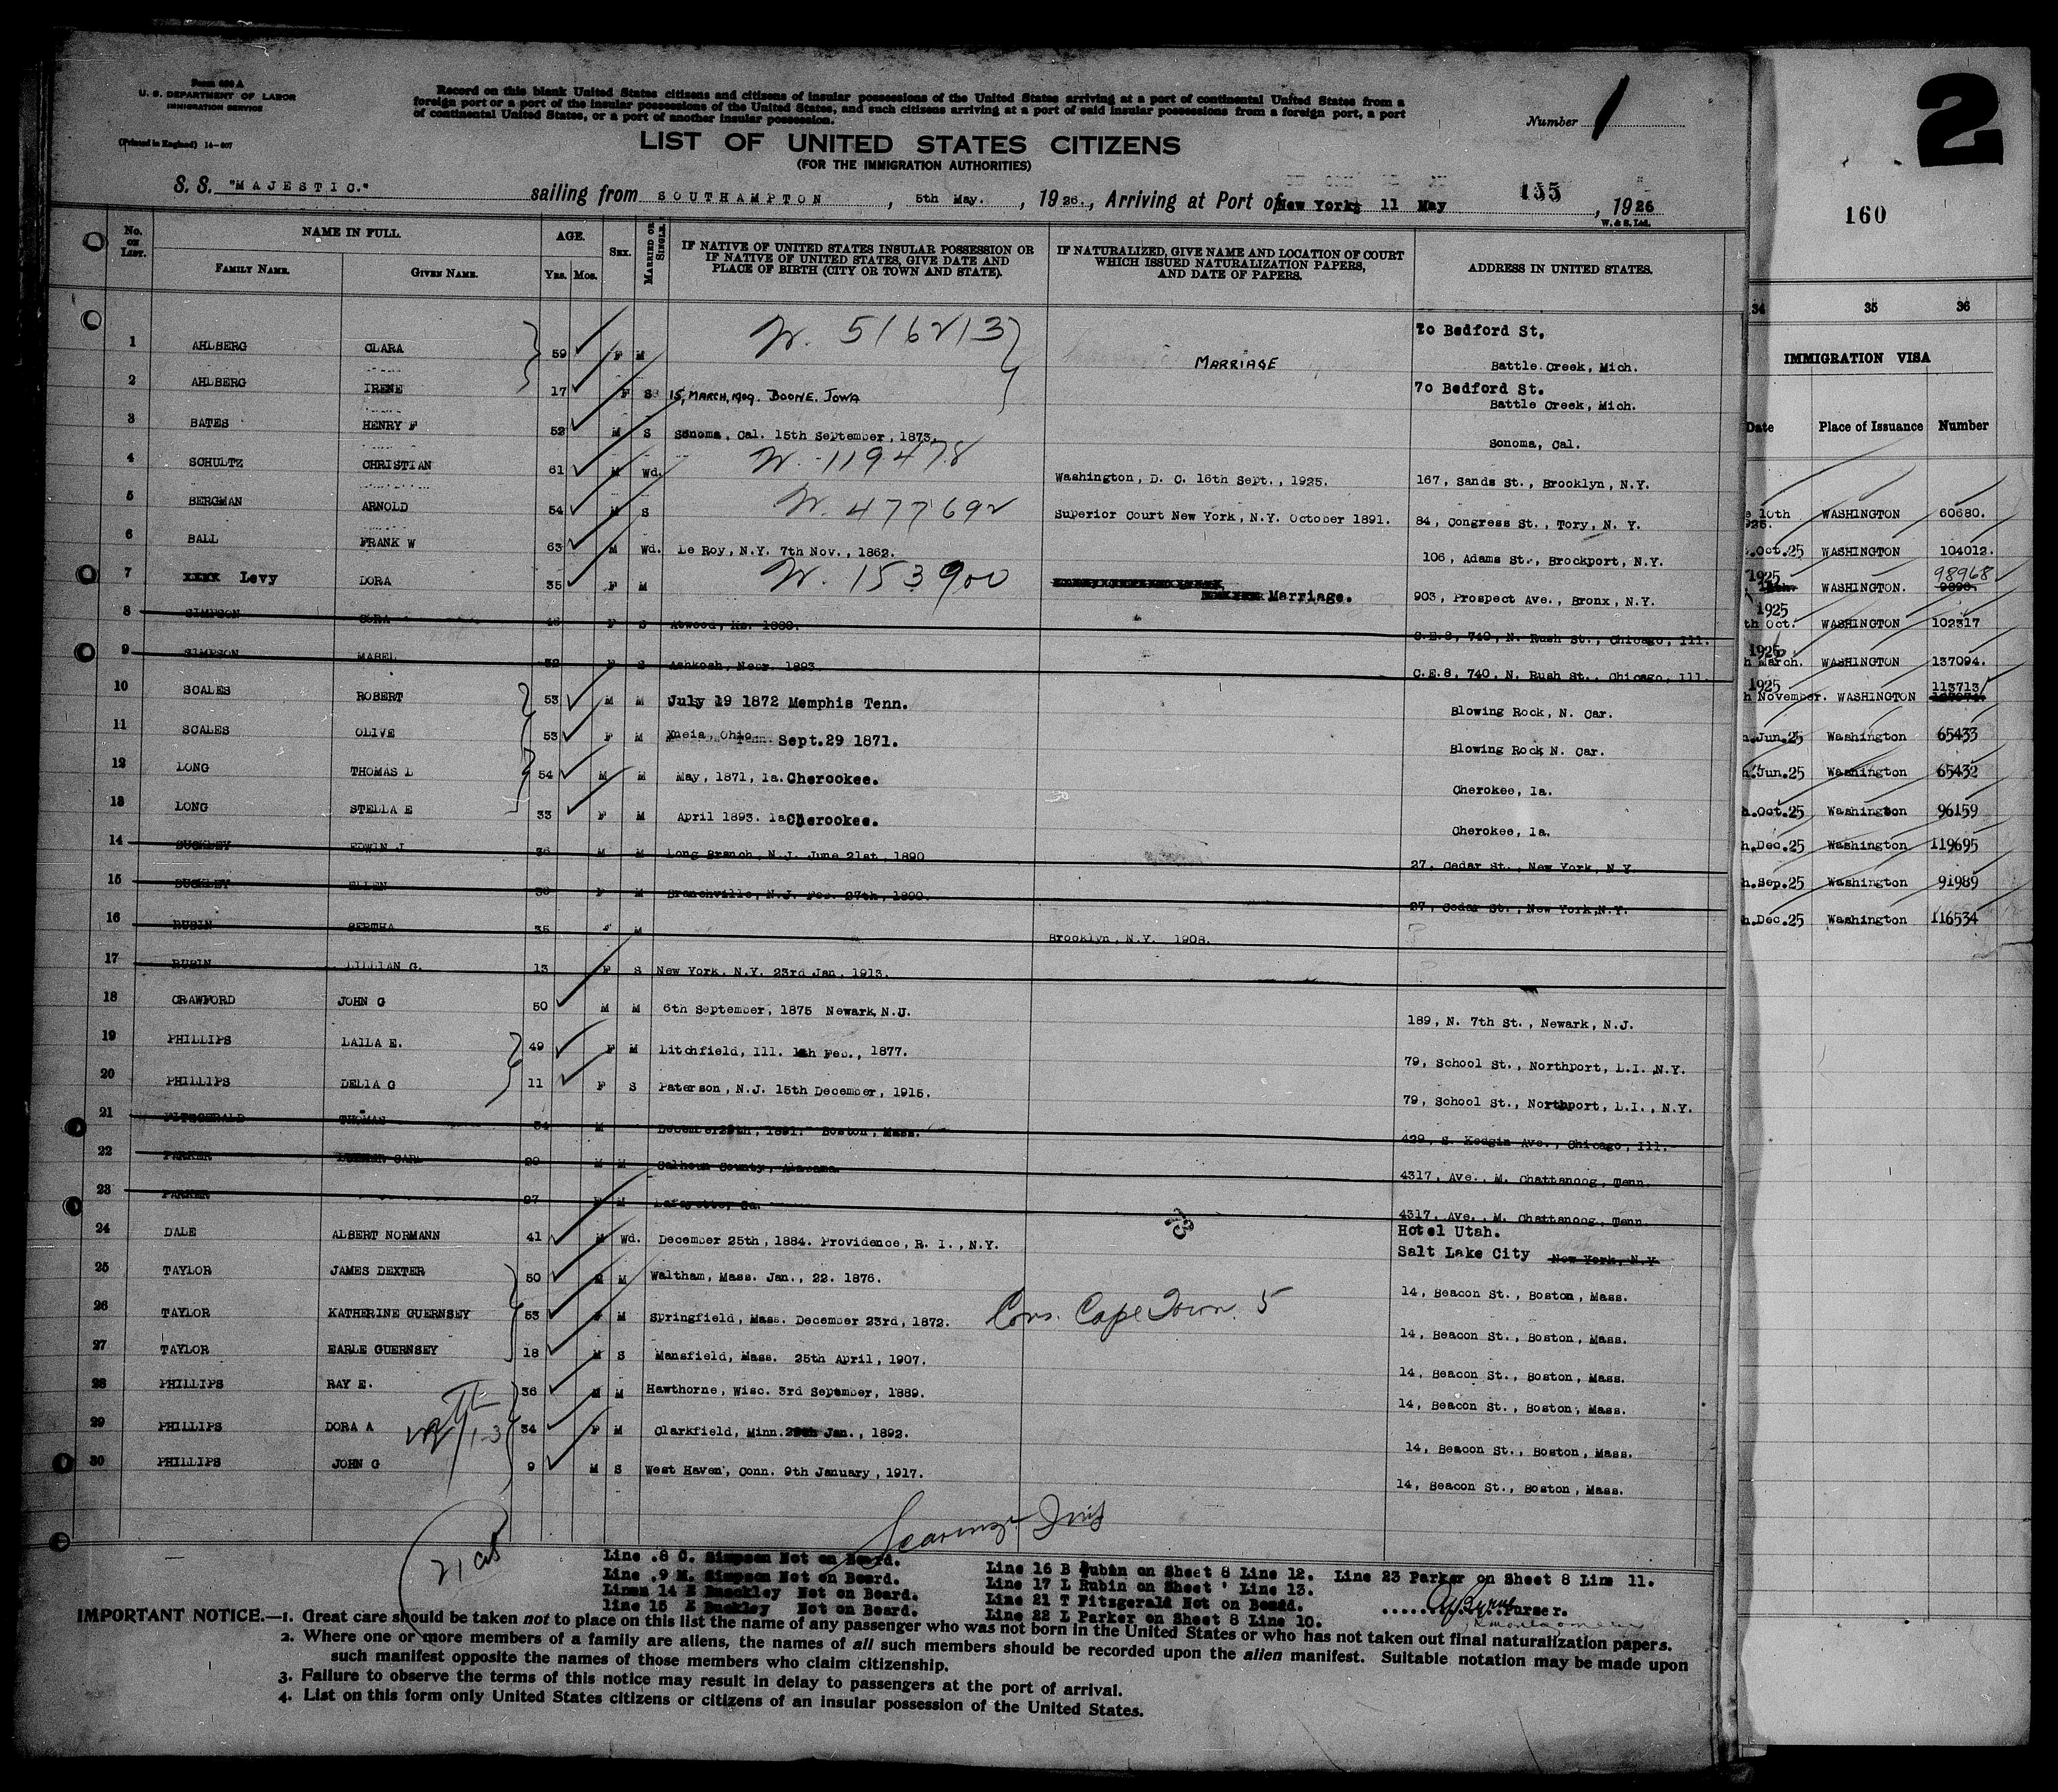 Form 630 A
U. S. DEPARTMENT OF LABOR
IMMIGRATION SERVICE
(Printed in England) 14-607
Record on this blank United States citizens and citizens of insular possessions of the United States arriving at a port of continental United States from a
foreign port or a port of the insular possessions of the United States, and such citizens arriving at a port of said insular possessions from a foreign port, a port
of continental United States, or a port of another insular possession.
Number 1
LIST OF UNITED STATES CITIZENS
(FOR THE IMMIGRATION AUTHORITIES)
S. S. "MAJESTIC." sailing from SOUTHAMPTON, 5th May., 1926., Arriving at Port of New York; 11 May 135, 1926
W. & S. Ltd.
No. ON LIST. NAME IN FULL. AGE. SEX. MARRIED OR SINGLE. IF NATIVE OF UNITED STATES INSULAR POSSESSION OR IF NATIVE OF UNITED STATES, GIVE DATE AND PLACE OF BIRTH (CITY OR TOWN AND STATE). IF NATURALIZED, GIVE NAME AND LOCATION OF COURT WHICH ISSUED NATURALIZATION PAPERS, AND DATE OF PAPERS. ADDRESS IN UNITED STATES.
FAMILY NAME. GIVEN NAME. Yrs. Mos.
1 AHLBERG CLARA 59 F M N. 516213 MARRIAGE 70 Bedford St. Battle Creek, Mich.
2 AHLBERG IRENE 17 F S 15, MARCH, 1909. BOONE. IOWA 70 Bedford St. Battle Creek, Mich.
3 BATES HENRY F 52 M S Sonoma, Cal. 15th September, 1873. Sonoma, Cal.
4 SCHULTZ CHRISTIAN 61 M Wd. N. 119478 Washington, D. C. 16th Sept., 1925. 167, Sands St., Brooklyn, N.Y.
5 BERGMAN ARNOLD 54 M S N. 477692 Superior Court New York, N.Y. October 1891. 84, Congress St., Tory, N. Y.
6 BALL FRANK W 63 M Wd. Le Roy, N.Y. 7th Nov., 1862. 106, Adams St., Brockport, N.Y.
7 Levy DORA 35 F M N. 153900 Marriage. 903, Prospect Ave., Bronx, N.Y.
8 SIMPSON CORA 46 F S Atwood, Ks. 1880. C.E.8, 740, N. Rush St., Chicago, Ill.
9 SIMPSON MABEL 32 F S Ashkosh, Nebr. 1893 C.E.8, 740, N. Rush St., Chicago, Ill.
10 SCALES ROBERT 53 M M July 19 1872 Memphis Tenn. Blowing Rock, N. Car.
11 SCALES OLIVE 53 F M Xneia, Ohio Sept.29 1871. Blowing Rock N. Car.
12 LONG THOMAS L 54 M M May, 1871, Ia. Cherookee. Cherokee, Ia.
13 LONG STELLA E 33 F M April 1893. Ia Cherookee. Cherokee, Ia.
14 BUCKLEY EDWIN J 36 M M Long Branch, N.J. June 21st, 1890 27, Cedar St., New York, N.Y.
15 BUCKLEY ELLEN 36 F M Branchville, N.J. Feb. 27th, 1890. 27, Cedar St., New York, N.Y.
16 RUBIN BERTHA 35 F M Brooklyn, N.Y. 1908. ?
17 RUBIN LILLIAN G. 13 F S New York, N.Y. 23rd Jan. 1913.
18 CRAWFORD JOHN G 50 M M 6th September, 1875 Newark, N.J. 189, N. 7th St., Newark, N.J.
19 PHILLIPS LAILA E. 49 F M Litchfield, Ill. Feb., 1877. 79, School St., Northport, L.I., N.Y.
20 PHILLIPS DELIA G 11 F S Paterson, N.J. 15th December, 1915. 79, School St., Northport, L.I., N.Y.
21 FITZGERALD THOMAS 34 M December 29th, 1891. Boston, Mass. 429, S. Kedgin Ave., Chicago, Ill.
22 PARKER LUTHER CARL 29 M M Calhoun County, Alabama. 4317, Ave., M. Chattanoog, Tenn.
23 PARKER 27 F M Lafayette, Ga. 4317, Ave., M. Chattanoog, Tenn.
24 DALE ALBERT NORMANN 41 M Wd. December 25th, 1884. Providence, R. I., N.Y. Hotel Utah. Salt Lake City New York, N.Y.
25 TAYLOR JAMES DEXTER 50 M M Waltham, Mass. Jan., 22. 1876. 14, Beacon St., Boston, Mass.
26 TAYLOR KATHERINE GUERNSEY 53 F M Springfield, Mass. December 23rd, 1872. Cons. Cape Town. 5 14, Beacon St., Boston, Mass.
27 TAYLOR EARLE GUERNSEY 18 M S Mansfield, Mass. 25th April, 1907. 14, Beacon St., Boston, Mass.
28 PHILLIPS RAY E. 36 M M Hawthorne, Wisc. 3rd September, 1889. 14, Beacon St., Boston, Mass.
29 PHILLIPS DORA A 34 F M Clarkfield, Minn. 29th Jan., 1892. 14, Beacon St., Boston, Mass.
30 PHILLIPS JOHN G 9 M S West Haven, Conn. 9th January, 1917. 14, Beacon St., Boston, Mass.
21
Line .8 C. Simpson Not on Board.
Line .9 M. Simpson Not on Board.
Linea 14 E Buckley Not on Board.
line 15 E Buckley Not on Board.
Line 16 B Rubin on Sheet 8 Line 12.
Line 17 L Rubin on Sheet ' Line 13.
Line 21 T Fitzgerald Not on Board.
Line 22 L Parker on Sheet 8 Line 10.
Line 23 Parker on Sheet 8 Line 11.
Purser.
IMPORTANT NOTICE.—1. Great care should be taken not to place on this list the name of any passenger who was not born in the United States or who has not taken out final naturalization papers.
2. Where one or more members of a family are aliens, the names of all such members should be recorded upon the alien manifest. Suitable notation may be made upon
such manifest opposite the names of those members who claim citizenship.
3. Failure to observe the terms of this notice may result in delay to passengers at the port of arrival.
4. List on this form only United States citizens or citizens of an insular possession of the United States.
2
160
34 35 36
IMMIGRATION VISA
Date Place of Issuance Number
10th WASHINGTON 60680.
Oct.25 WASHINGTON 104012.
1925 WASHINGTON. 98968
1925
th Oct. WASHINGTON 102317
1925
h March. WASHINGTON 137094.
1925
h November. WASHINGTON 113713
Jun.25 Washington 65433
Jun.25 Washington 65432
h.Oct.25 Washington 96159
h.Dec.25 Washington 119695
h.Sep.25 Washington 91989
h.Dec.25 Washington 116534